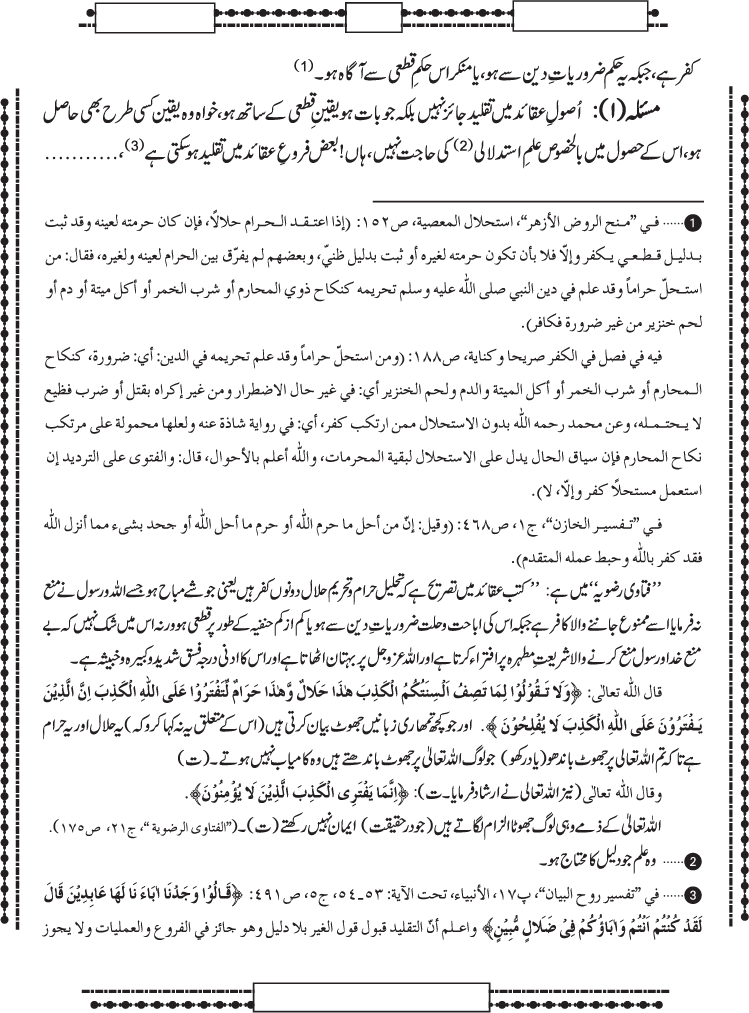 کفر ہے، جبکہ یہ حکم ضروریاتِ دین سے ہو، یا منکر اس حکمِ قطعی سے آگاہ ہو۔ (1)
مسئلہ (۱): اُصولِ عقائد میں تقلید جائز نہیں بلکہ جو بات ہو یقینِ قطعی کے ساتھ ہو، خواہ وہ یقین کسی طرح بھی حاصل
ہو، اس کے حصول میں بالخصوص علمِ استدلالی (2) کی حاجت نہیں، ہاں! بعض فروعِ عقائد میں تقلید ہو سکتی ہے (3)، ...........
1 ...... فـي ”مـنح الروض الأزهر“، استحلال المعصية، ص١٥٢: (إذا اعتـقـد الـحـرام حلالاً، فإن كان حرمته لعينه وقد ثبت
بـدليـل قـطـعـي يـكـفر وإلّا فلا بأن تكون حرمته لغيره أو ثبت بدليل ظنيّ، وبعضهم لم يفرّق بين الحرام لعينه ولغيره، فقال: من
استـحلّ حراماً وقد علم في دين النبي صلى الله عليه وسلم تحريمه كنكاح ذوي المحارم أو شرب الخمر أو أكل ميتة أو دم أو
لحم خنزير من غير ضرورة فكافر).
فيه في فصل في الكفر صريحا وكناية، ص١٨٨: (ومن استحلّ حراماً وقد علم تحريمه في الدين: أي: ضرورة، كنكاح
الـمحارم أو شرب الخمر أو أكل الميتة والدم ولحم الخنزير أي: في غير حال الاضطرار ومن غير إكراه بقتل أو ضرب فظيع
لا يـحتـمـله، وعن محمد رحمه الله بدون الاستحلال ممن ارتكب كفر، أي: في رواية شاذة عنه ولعلها محمولة على مرتكب
نكاح المحارم فإن سياق الحال يدل على الاستحلال لبقية المحرمات، والله أعلم بالأحوال، قال: والفتوى على الترديد إن
استعمل مستحلاً كفر وإلّا، لا).
فـي ”تـفسيـر الخازن“، ج١، ص٤٦٨: (وقيل: إنّ من أحل ما حرم الله أو حرم ما أحل الله أو جحد بشيء مما أنزل الله
فقد كفر بالله وحبط عمله المتقدم).
”فتاوی رضویہ“ میں ہے: ”کتب عقائد میں تصریح ہے کہ تحلیل حرام وتحریم حلال دونوں کفر ہیں یعنی جو شے مباح ہو جسے اللہ ورسول نے منع
نہ فرمایا اسے ممنوع جاننے والا کافر ہے جبکہ اس کی اباحت وحلت ضروریاتِ دین سے ہو یا کم از کم حنفیہ کے طور پر قطعی ہو ورنہ اس میں شک نہیں کہ بے
منع خدا ورسول منع کرنے والا شریعتِ مطہرہ پر افتراء کرتا ہے اور اللہ عزوجل پر بہتان اٹھاتا ہے اور اس کا ادنی درجہ فسق شدید وکبیرہ وخبیثہ ہے۔
قال الله تعالى: ﴿وَلَا تَـقُوْلُوْا لِمَا تَصِفُ اَلْسِنَتُكُمُ الْكَذِبَ هٰذَا حَلٰلٌ وَّهٰذَا حَرَامٌ لِّتَفْتَرُوْا عَلَى اللهِ الْكَذِبَ اِنَّ الَّذِيْنَ
يَـفْتَرُوْنَ عَلَى اللهِ الْكَذِبَ لَا يُفْلِحُوْنَ﴾. اور جو کچھ تمھاری زبانیں جھوٹ بیان کرتی ہیں (اس کے متعلق یہ نہ کہا کرو کہ) یہ حلال اور یہ حرام
ہے تاکہ تم اللہ تعالی پر جھوٹ باندھو (یاد رکھو) جو لوگ اللہ تعالیٰ پر جھوٹ باندھتے ہیں وہ کامیاب نہیں ہوتے۔ (ت)
وقال الله تعالى (نیز اللہ تعالی نے ارشاد فرمایا۔ت): ﴿اِنَّمَا يَفْتَرِى الْكَذِبَ الَّذِيْنَ لَا يُؤْمِنُوْنَ﴾.
اللہ تعالیٰ کے ذمے وہی لوگ جھوٹا الزام لگاتے ہیں (جو درحقیقت) ایمان نہیں رکھتے (ت)۔ (”الفتاوى الرضوية“، ج٢١، ص١٧٥).
2 ...... وہ علم جو دلیل کا محتاج ہو۔
3 ...... في ”تفسير روح البيان“، پ١٧، الأنبياء، تحت الآية: ٥٣ـ٥٤، ج٥، ص٤٩١: ﴿قَـالُوْا وَجَدْنَا اٰبَاءَ نَا لَهَا عَابِدِيْنَ قَالَ
لَقَدْ كُنْتُمْ اَنْتُمْ وَاٰبَاؤُكُمْ فِىْ ضَلَالٍ مُّبِيْنٍ﴾ واعـلـم أنّ التقليد قبول قول الغير بلا دليل وهو جائز في الفروع والعمليات ولا يجوز